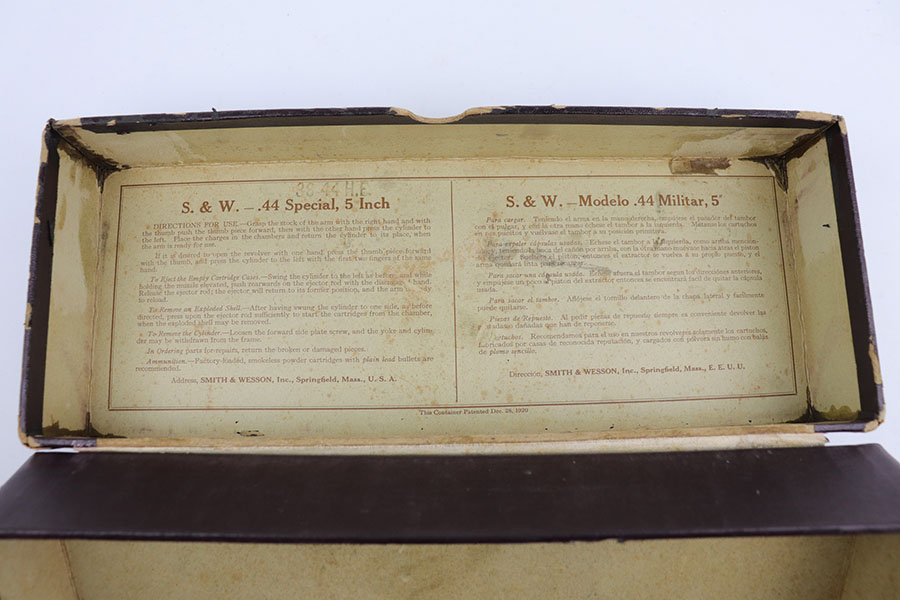 38-44 H.E.
S. & W. — .44 Special, 5 Inch
DIRECTIONS FOR USE.—Grasp the stock of the arm with the right hand and with
the thumb push the thumb piece forward, then with the other hand press the cylinder to
the left. Place the charges in the chambers and return the cylinder to its place, when
the arm is ready for use.
If it is desired to open the revolver with one hand press the thumb-piece forward
with the thumb, and press the cylinder to the left with the first two fingers of the same
hand.
To Eject the Empty Cartridge Cases.—Swing the cylinder to the left as before, and while
holding the muzzle elevated, push rearwards on the ejector rod with the hand.
Release the ejector rod; the ejector will return to its former position, and the arm
to reload.
To Remove an Exploded Shell.—After having swung the cylinder to one side, as before
directed, press upon the ejector rod sufficiently to start the cartridges from the chamber,
when the exploded shell may be removed.
To Remove the Cylinder.—Loosen the forward side plate screw, and the yoke and cylin-
der may be withdrawn from the frame.
In Ordering parts for repairs, return the broken or damaged pieces.
Ammunition.—Factory-loaded, smokeless powder cartridges with plain lead bullets are
recommended.
Address, SMITH & WESSON, Inc., Springfield, Mass., U. S. A.
S. & W. —Modelo .44 Militar, 5"
Para cargar. Teniendo el arma en la mano derecha, empújese el pulador del tambor
con el pulgar, y con la otra mano échese el tambor a la izquierda. Métanse los cartuchos
en sus puestos y vuélvase el tambor a su posición primitiva.
Para expeler cápsulas usadas. Échese el tambor a la izquierda, como arriba mencio-
teniendo la boca del cañón por arriba, con la otra mano hacia atrás el pistón
el pistón, entonces el extractor se vuelve a su propio puesto, y el
arma quedará lista para cargar.
Para sacar una cápsula usada. Échese afuera el tambor según las direcciones anteriores,
y empújese un poco el pistón del extractor entonces se encontrará fácil de quitar la cápsula
usada.
Para sacar el tambor. Aflójese el tornillo delantero de la chapa lateral y fácilmente
puede quitarse.
Piezas de Repuesto. Al pedir piezas de repuesto siempre es conveniente devolver las
dañadas que han de reponerse.
Cartuchos. Recomendamos para el uso en nuestros revólveres solamente los cartuchos,
fabricados por casas de reconocida reputación, y cargados con pólvora sin humo con balas
de plomo sencillo.
Dirección, SMITH & WESSON, Inc., Springfield, Mass., E. E. U. U.
This Container Patented Dec. 28, 1920